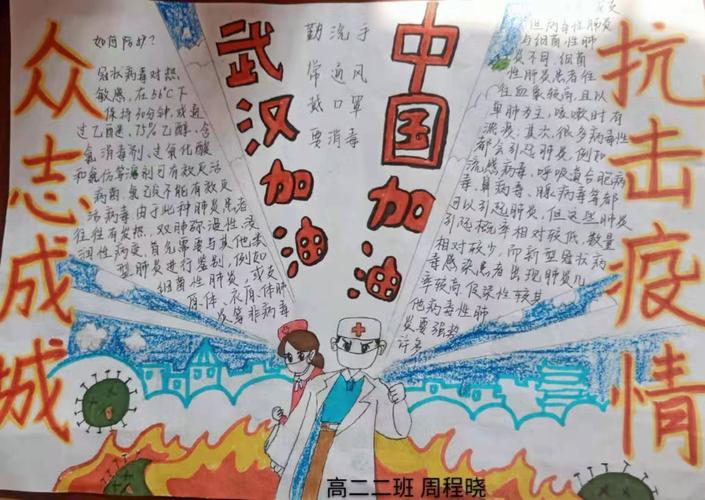 众志成城
如何防护?
冠状病毒对热
敏感,在56℃下
保持30分钟,或通
过乙醚、75%乙醇、含
氯消毒剂、过氧化酸
和氯仿等溶剂可有效灭活
病菌,氯乙定不能有效灭
活病毒,由于此种肺炎患者
往往有发热,双肺弥漫性浸
润性病变,首先需要与其他类
型肺炎进行鉴别,例如
细菌性肺炎,或支
原体、衣原体肺
炎等非病毒
武汉加油
勤洗手
常通风
戴口罩
要消毒
中国加油
但病毒性肺炎
与细菌性肺
炎不同,细菌
性肺炎患者往
往血象较高,且以
单肺为主,咳嗽时有
浓痰,其次,很多病毒性
都会引起肺炎,例如
流感病毒,呼吸道合胞病
毒,鼻病毒,腺病毒等都
可以引起肺炎,但这些肺炎
引起概率相对较低,数量
相对较少,而新型冠状病
毒感染患者出现肺炎几
率较高,传染性较其
他病毒性肺
炎要强热
许多
抗击疫情
高二二班 周程晓